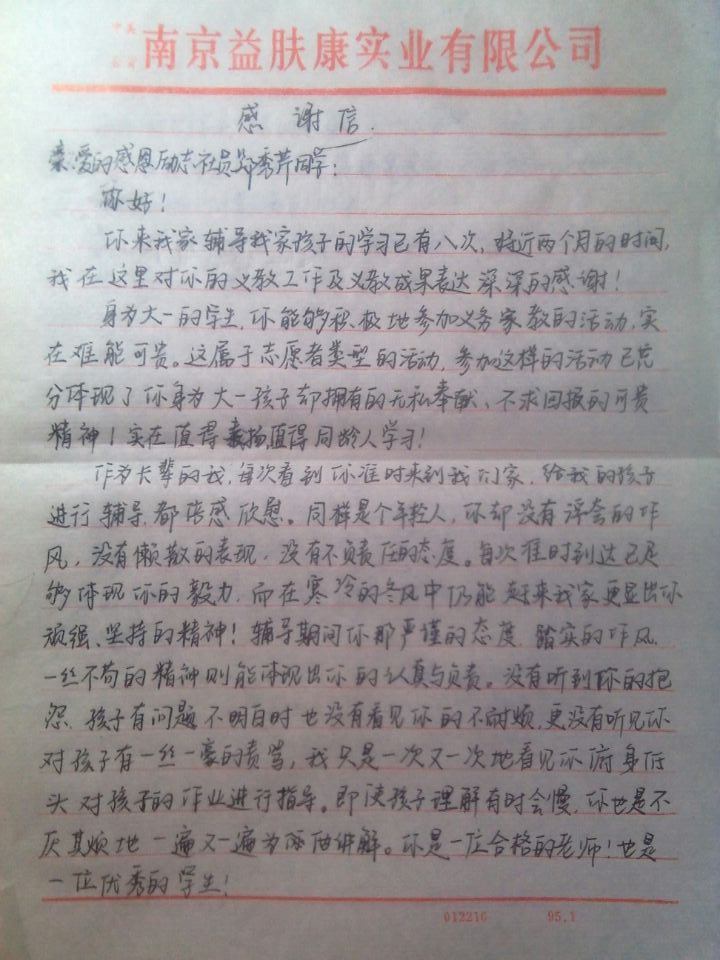 南京益肤康实业有限公司
感谢信
亲爱的感恩励志社员郑秀芹同学:
你好!
你来我家辅导我家孩子的学习已有八次,将近两个月的时间,
我在这里对你的义教工作及义教成果表达深深的感谢!
身为大一的学生,你能够积极地参加义务家教的活动,实
在难能可贵。这属于志愿者类型的活动,参加这样的活动已充
分体现了你身为大一孩子却拥有的无私奉献、不求回报的可贵
精神!实在值得表扬,值得同龄人学习!
作为长辈的我,每次看到你准时来到我们家,给我的孩子
进行辅导,都倍感欣慰。同样是个年轻人,你却没有浮夸的作
风,没有懒散的表现,没有不负责任的态度。每次准时到达已足
够体现你的毅力,而在寒冷的冬风中仍能赶来我家更显出你
顽强、坚持的精神!辅导期间你那严谨的态度,踏实的作风,
一丝不苟的精神则能体现出你的认真与负责。没有听到你的抱
怨,孩子有问题不明白时也没有看见你的不耐烦,更没有听见你
对孩子有一丝一豪的责骂,我只是一次又一次地看见你俯身低
头对孩子的作业进行指导。即使孩子理解有时会慢,你也是不
厌其烦地一遍又一遍为他讲解。你是一位合格的老师!也是
一位优秀的学生!
012216 95.1